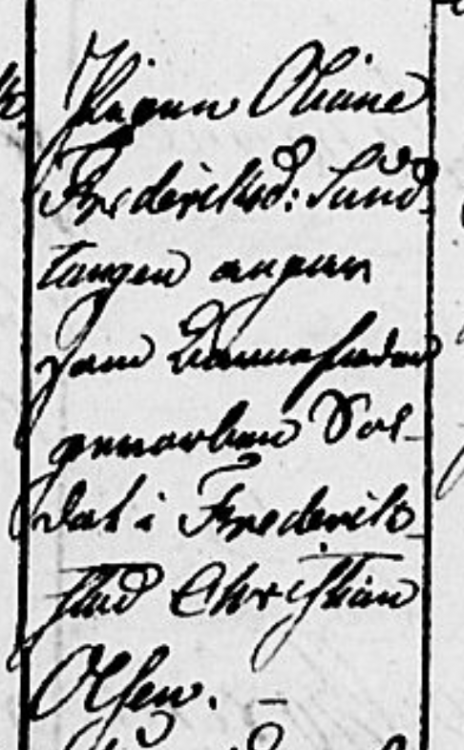 Pigen Oliane
Frederiksd: Sund
tangen angiver
som Barnefader
geworben Sol-
dat i Frederik-
stad Christian
Olsen. -